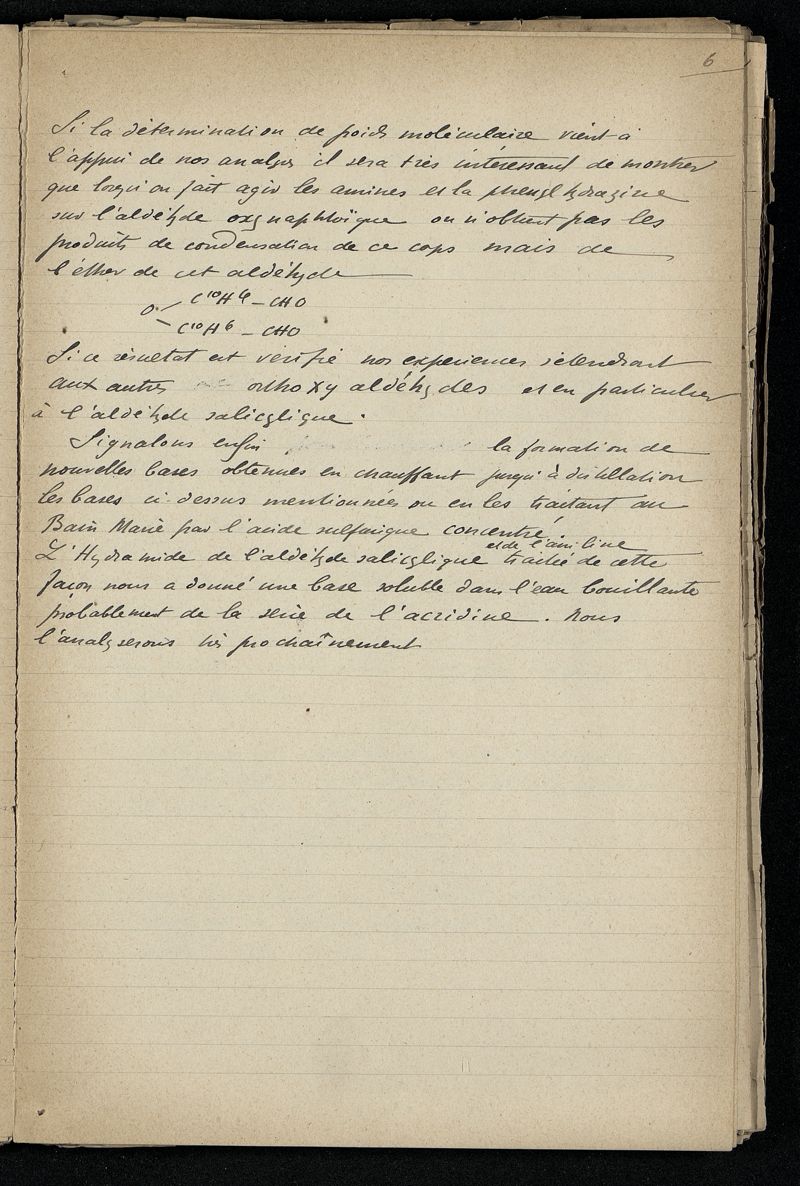 6
Si la détermination de poids moléculaire vient à
l'appui de nos analyses il sera très intéressant de montrer
que lorsqu'on fait agir les amines et la phenylhydrazine
sur l'aldéhyde oxynaphtoïque on n'obtient pas les
produits de condensation de ce corps mais de
l'éther de cet aldéhyde
O C10H6 - CHO
C10H6 - CHO
Si ce résultat est vérifié nos expériences s'étendront
aux autres orthoxyaldéhydes et en particulier
à l'aldéhyde salicylique.
Signalons enfin la formation de
nouvelles bases obtenues en chauffant jusqu'à distillation
les bases ci-dessus mentionnées ou en les traitant au
Bain Marie par l'acide sulfurique concentré.
et de l'aniline
L'Hydramide de l'aldéhyde salicylique traitée de cette
façon nous a donné une base soluble dans l'eau bouillante
probablement de la série de l'acridine. Nous
l'analyserons très prochaînement